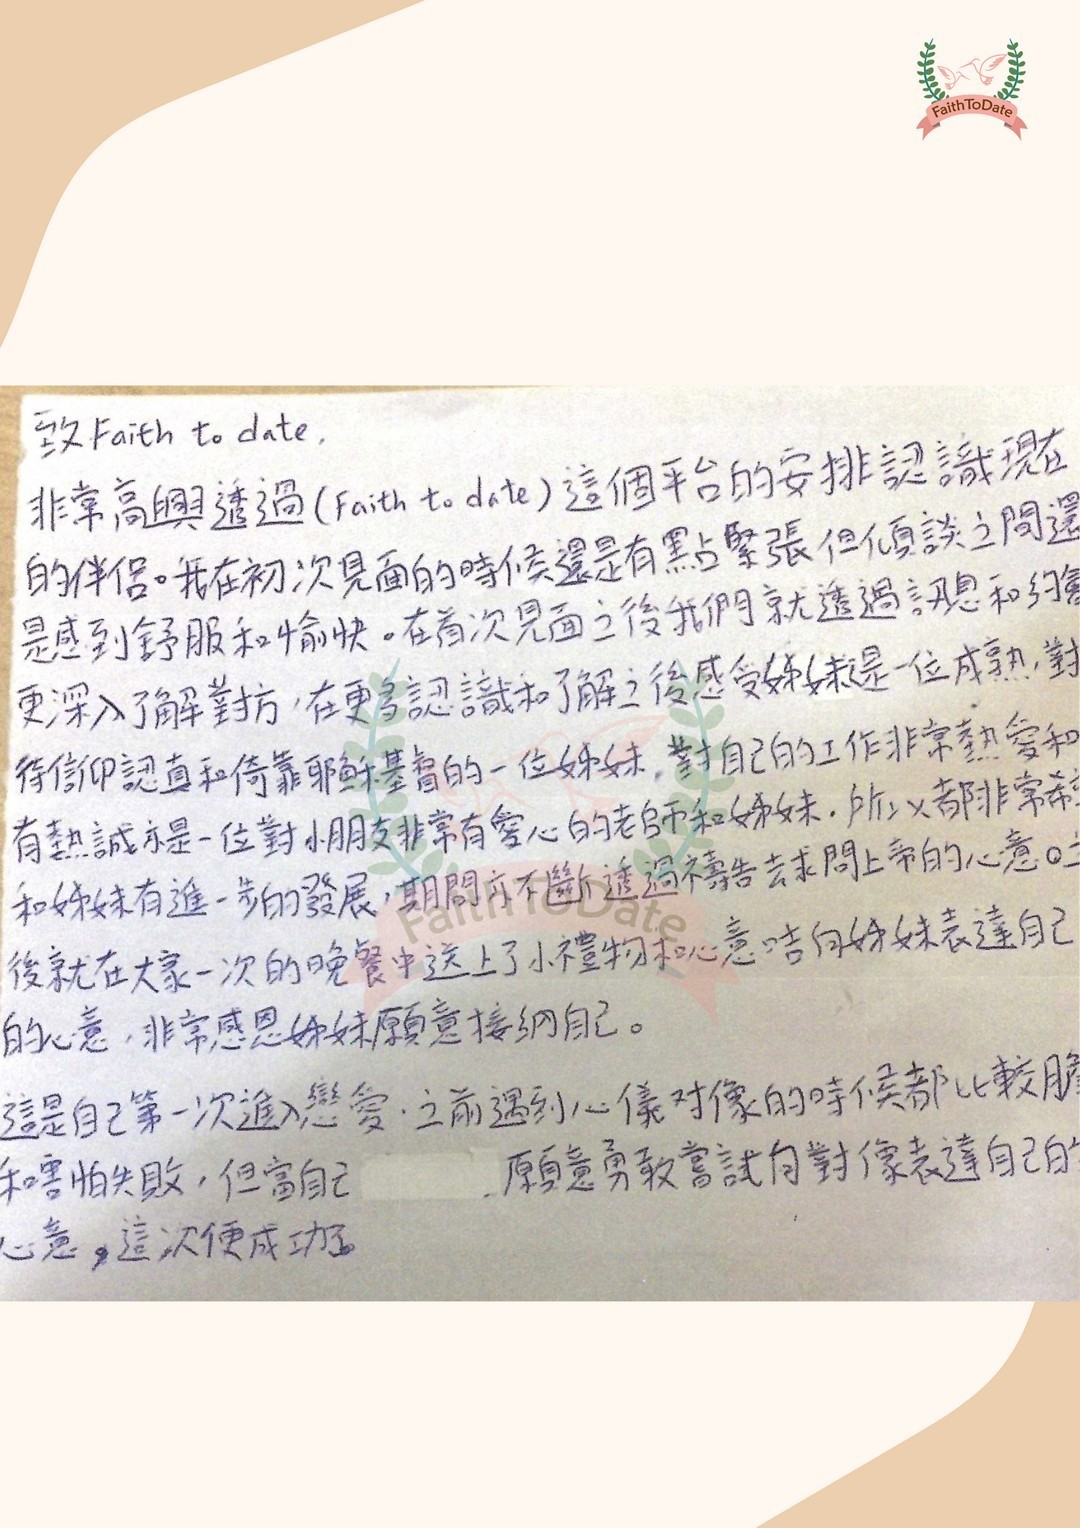 FaithToDate
致Faith to date,
非常高興透過(Faith to date)這個平台的安排認識現在
的伴侶。我在初次見面的時候還是有點緊張但傾談之間還
是感到舒服和愉快。在首次見面之後我們就透過訊息和約會
更深入了解對方,在更多認識和了解之後感受姊妹是一位成熟,對
待信仰認真和倚靠耶穌基督的一位姊妹,對自己的工作非常熱愛和
有熱誠亦是一位對小朋友非常有愛心的老師和姊妹.所以都非常希
和姊妹有進一步的發展,期間亦不斷透過禱告去求問上帝的心意。
後就在大家一次的晚餐中送上了小禮物和心意咭向姊妹表達自己
的心意,非常感恩姊妹願意接納自己。
這是自己第一次進入戀愛.之前遇到心儀对像的時候都比較膽
和害怕失敗,但當自己 願意勇敢嘗試向對像表達自己的
心意,這次便成功了。
FaithToDate